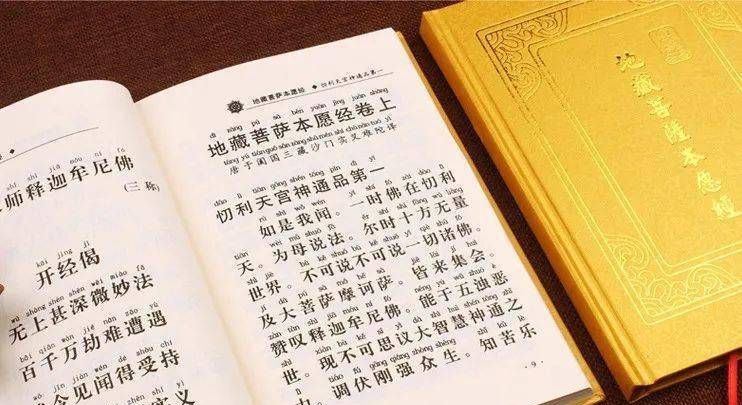 师释迦牟尼佛
(三称)
kāi jīng jì
开经偈
wú shàng shèn shēn wēi miào fǎ
无上甚深微妙法
bǎi qiān wàn jié nán zāo yù
百千万劫难遭遇
今见闻得受持
地藏菩萨本愿经 ◆ 忉利天宫神通品第一
dì zàng pú sà běn yuàn jīng juàn shàng
地藏菩萨本愿经卷上
táng yú tián guó sān zàng shā mén shí chā nán tuó yì
唐于阗国三藏沙门实叉难陀译
忉利天宫神通品第一
如是我闻。一时佛在忉利
天。为母说法。尔时十方无量
世界。不可说不可说一切诸佛。
及大菩萨摩诃萨。皆来集会。
赞叹释迦牟尼佛。能于五浊恶
世。现不可思议大智慧神通之
力。调伏刚强众生。知苦乐
·9·
地藏菩薩本愿經